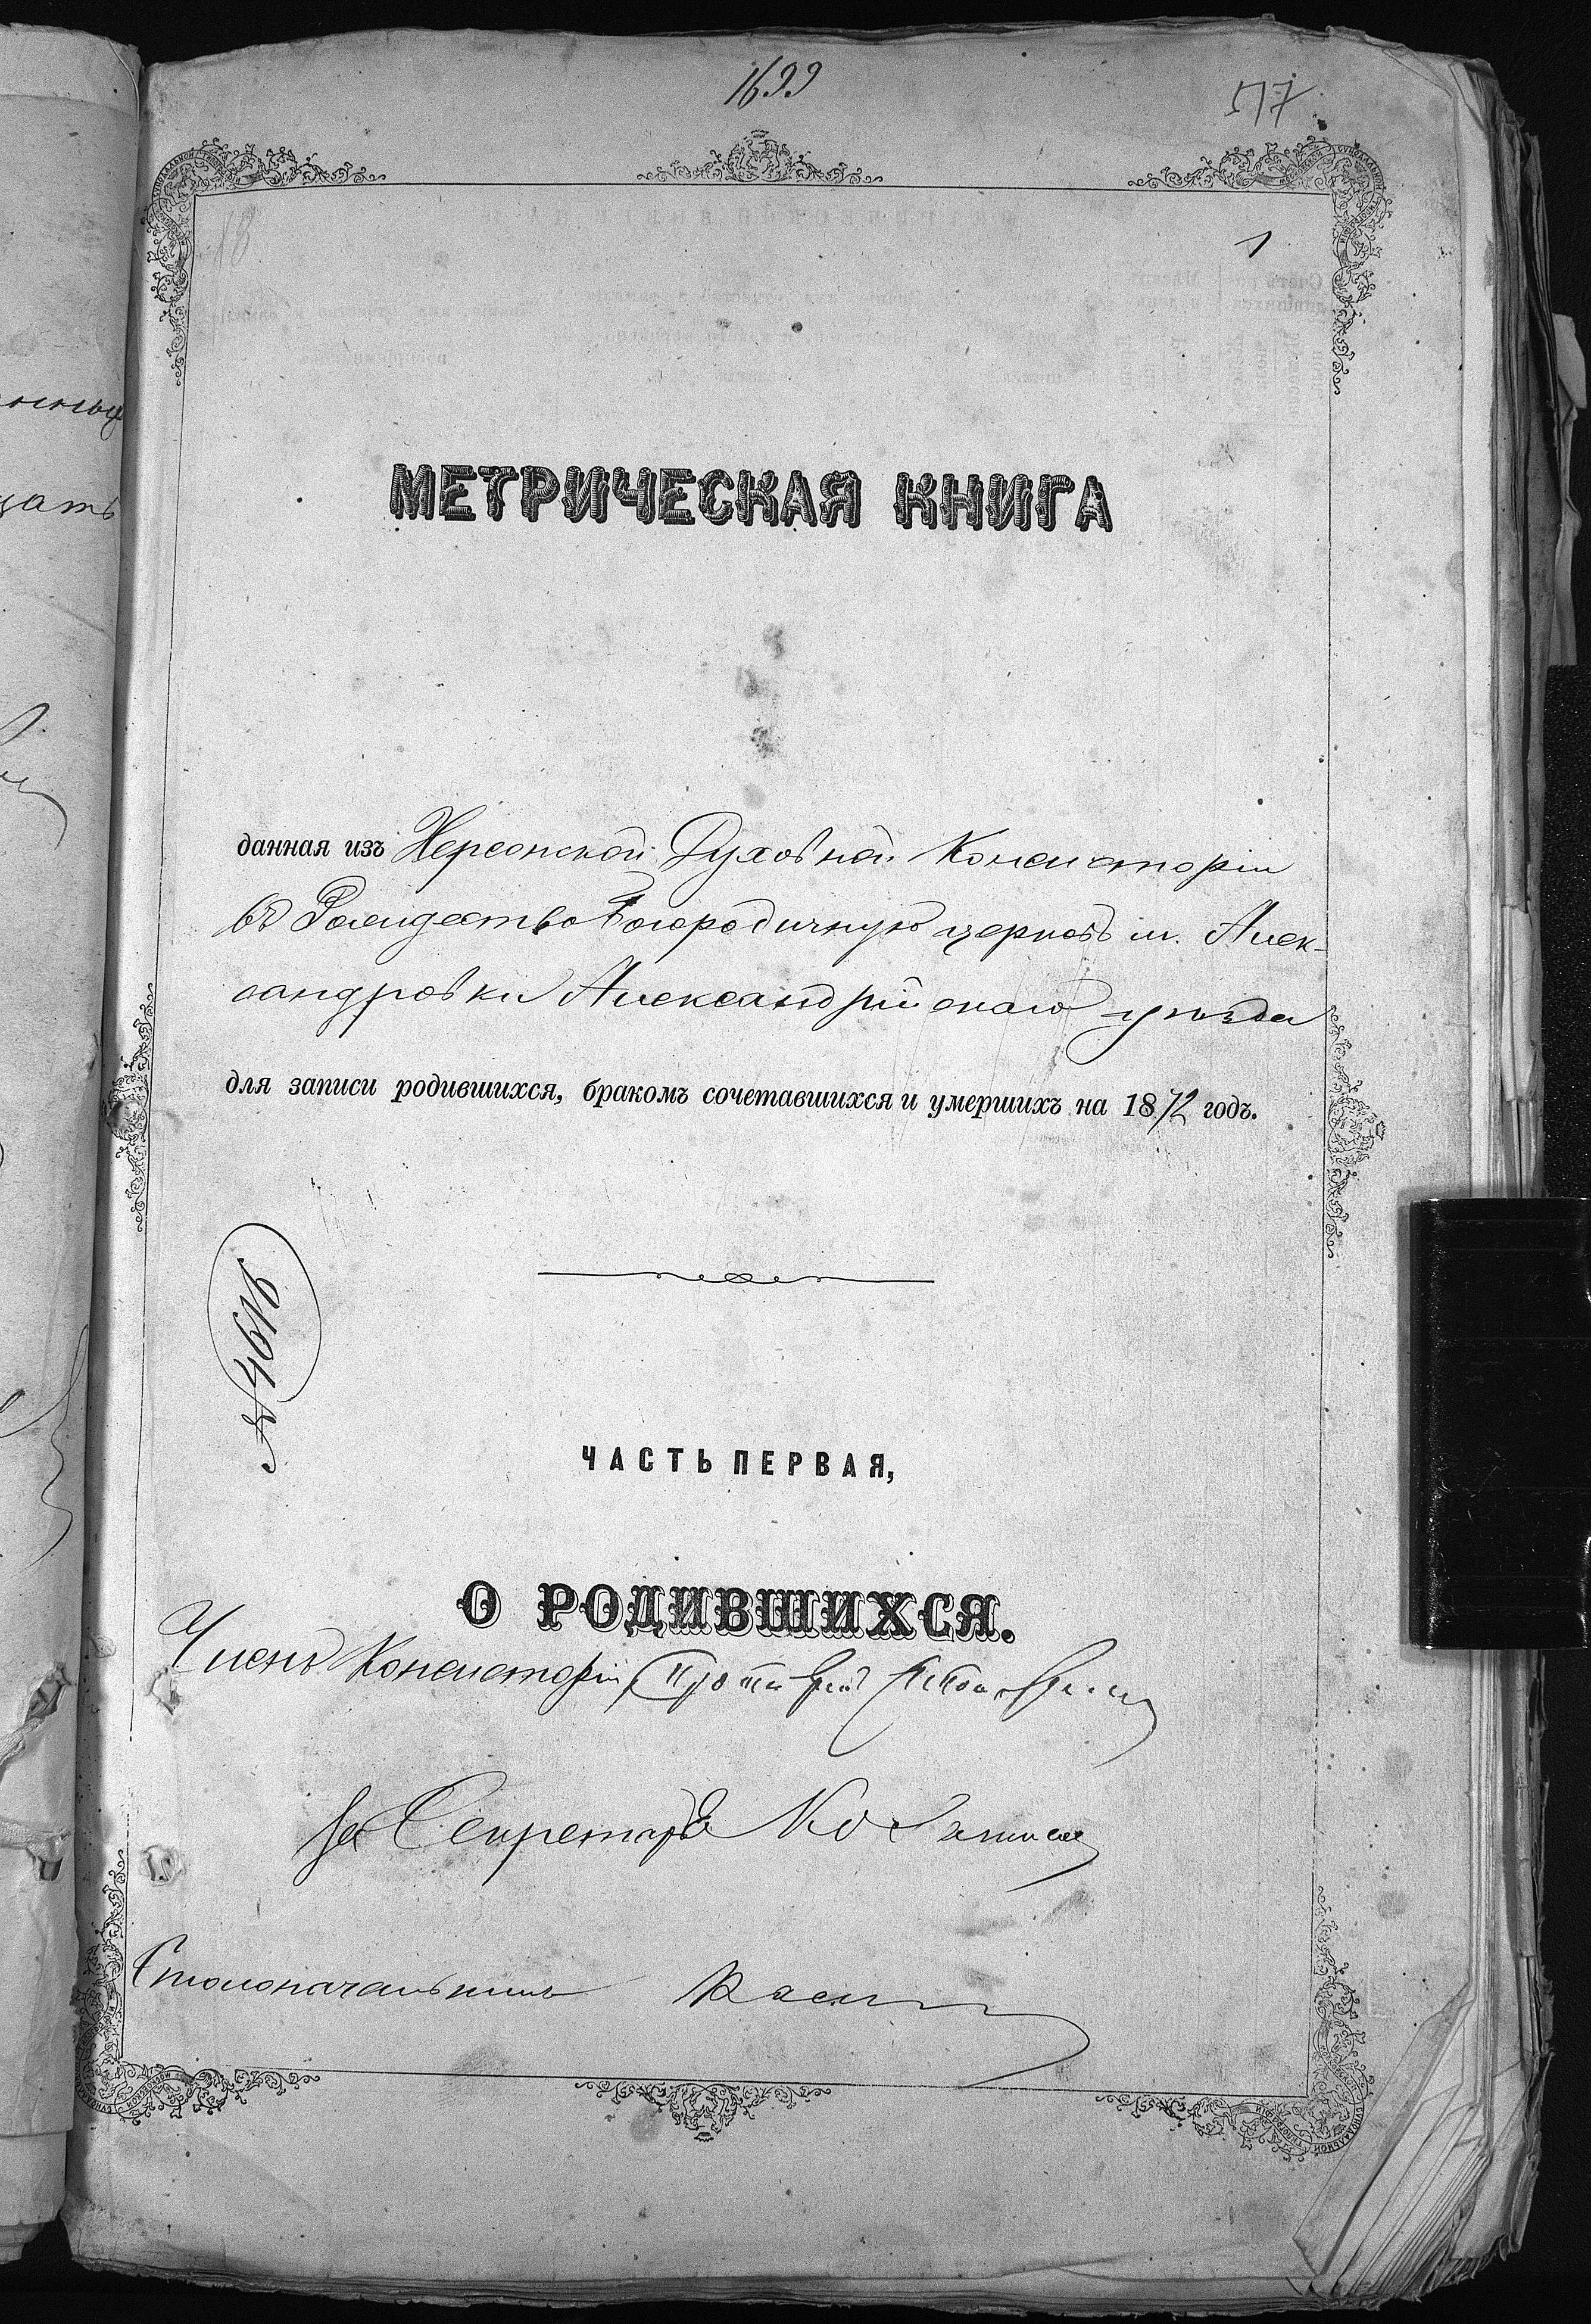 1699
517
1
МЕТРИЧЕСКАЯ КНИГА
данная изъ Херсонской Духовной Консисторіи
въ Рождество Богородичную церковь м. Алек-
сандровки Александрійскаго уѣзда
для записи родившихся, бракомъ сочетавшихся и умершихъ на 1872 годъ.
ЧАСТЬ ПЕРВАЯ,
О РОДИВШИХСЯ.
Членъ Консисторіи, Протоіерей
За Секретаря
Столоначальникъ